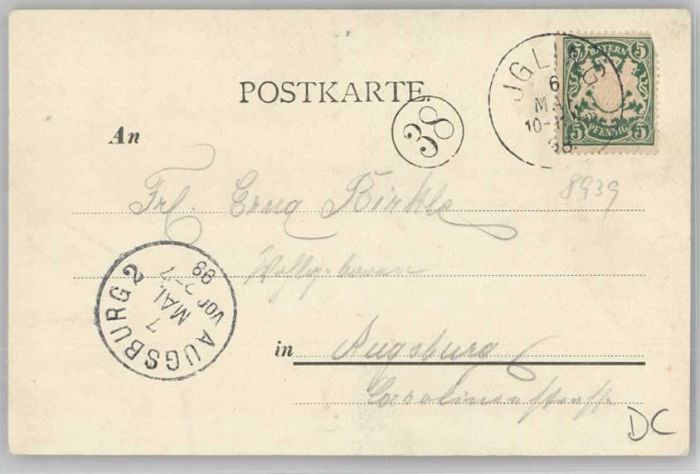 POSTKARTE.
JGLING
6
MAI
10-11
98.
5 BAYERN 5
5 PFENNIG 5
38
An
8939
Frl.
AUGSBURG 2
7
MAI.
VOR 2-7
98
in Augsburg
Carolinenstraße
DC